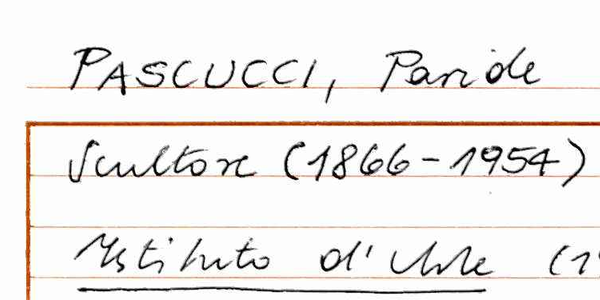 PASCUCCI, Paride
Scultore (1866-1954)
Istituto d'Arte (1